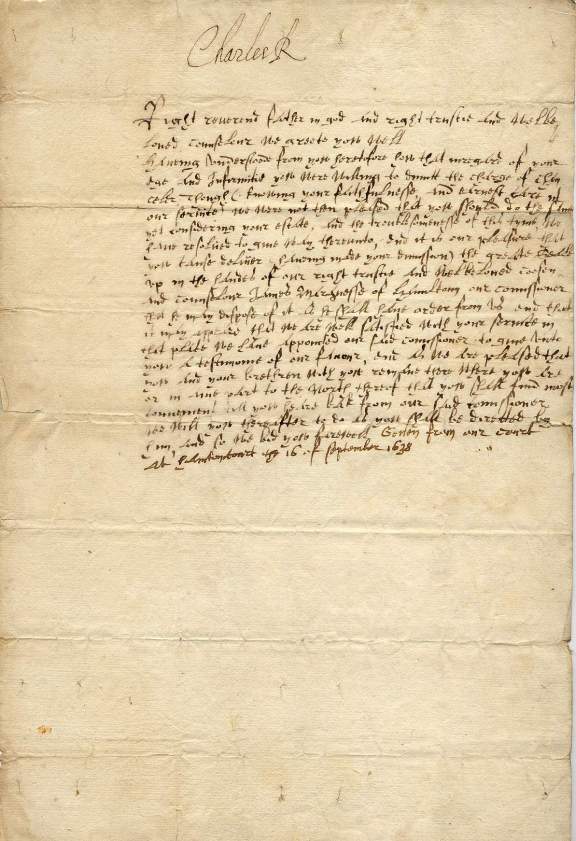 Charles R
Right reverend father in god and right trustie and welbe
loved counselour we greete yow well
Having vnderstoode from yow heretofore how that in regaird of your
age and Infirmitie yow were willing to dimitt the charge of Chan
cellr though (knowing your faithfulnesse, and earnest care in
our service) we were not then pleased that yow should do the same
yet considering your estate, and the troublsomenesse of this tyme, we
have resolved to give way therunto, and it is our pleasure that
yow cause deliuer (having made your dimission) the greate Seale
vp in the handes of our right trustie and welbeloved coosen
and counselour James Marquesse of Hammiltoun our comissioner
that he may dispose of it as he shall have order from vs and that
it may appeare that we are well satisfied with your service in
that place we have appointed our said comissioner to give vnto
yow a testimonie of our favour, and as we are pleased that
yow and your brethren with yow remaine there where yow are
or in anie part to the North therof that yow shall find most
convenient till yow heare back from our said comissioner
we will yow therafter to do as yow shall be directed by
him and so we bid yow farewell Geuen from our court
At Hamtoncourt the 16 of September 1638